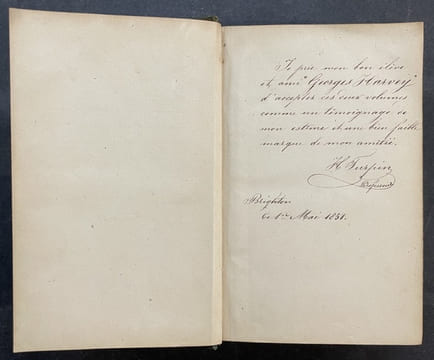 Je prie mon bon élève
et ami "Georges Harvey"
d'accepter ces deux volumes
comme un témoignage de
mon estime et une bien faible
marque de mon amitié.
H Turpin
Brighton
ce 1er Mai 1851.